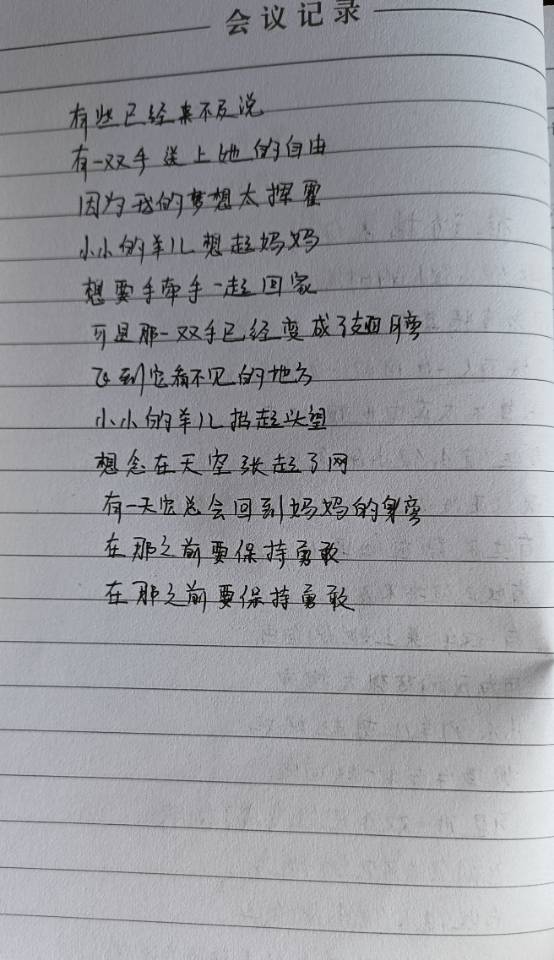 会议记录
有些已经来不及说
有一双手送上她的自由
因为我的梦想太挥霍
小小的羊儿想起妈妈
想要手牵手一起回家
可是那一双手已经变成了翅膀
飞到它看不见的地方
小小的羊儿抬起头望
想念在天空张起了网
有一天它总会回到妈妈的身旁
在那之前要保持勇敢
在那之前要保持勇敢